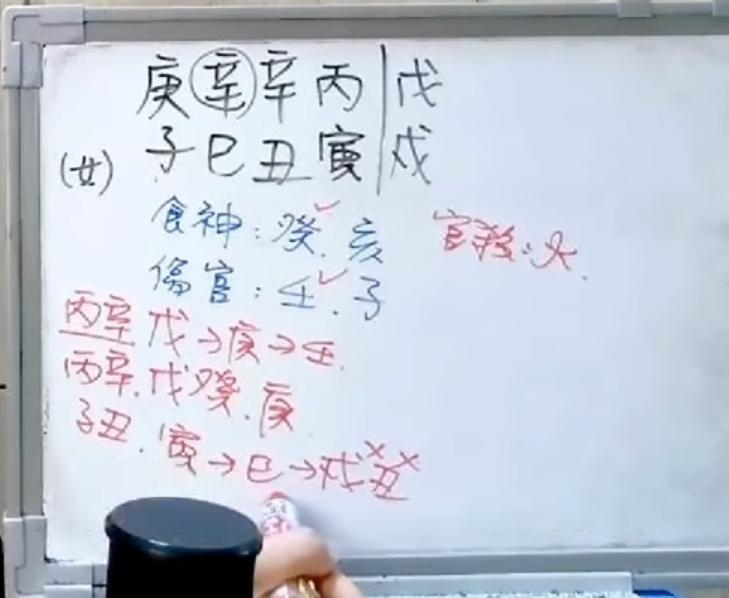 庚辛辛丙|戊
(女) 子巳丑寅|戌
食神:癸.亥 官殺:火.
傷官:壬.子
丙辛戊→庚→壬.
丙辛.戊癸.庚
子丑.寅→巳→戌丑